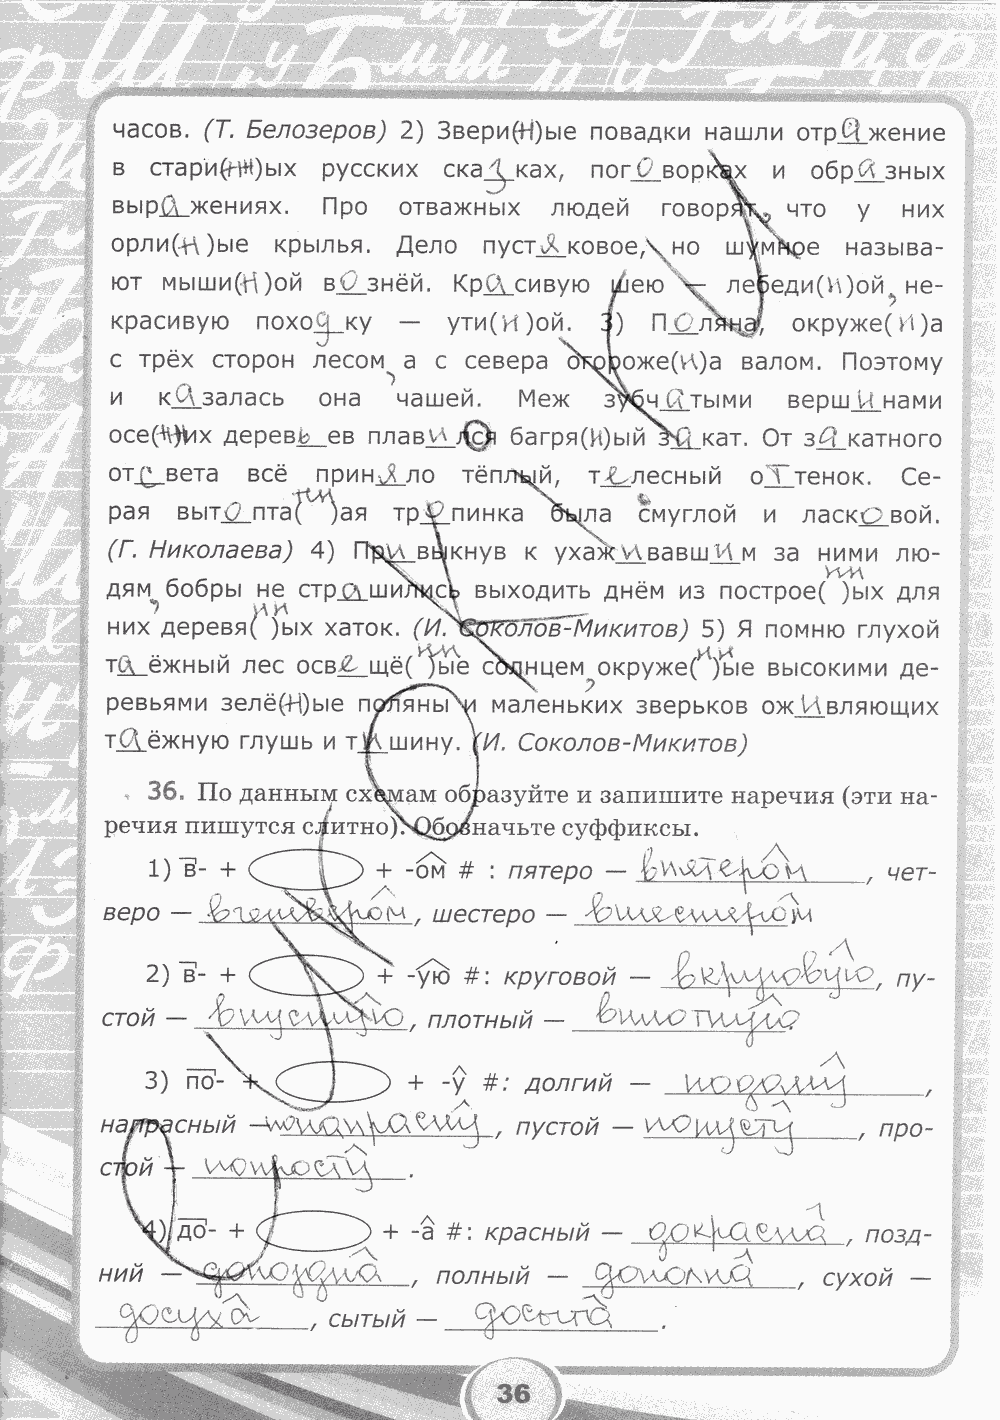 часов. (Т. Белозеров) 2) Звери(н)ые повадки нашли отражение
в стари(нн)ых русских сказках, поговорках и образных
выражениях. Про отважных людей говорят, что у них
орли(н)ые крылья. Дело пустяковое, но шумное называ-
ют мыши(н)ой вознёй. Красивую шею — лебеди(н)ой, не-
красивую походку — ути(н)ой. 3) Поляна, окруже(н)а
с трёх сторон лесом, а с севера огороже(н)а валом. Поэтому
и казалась она чашей. Меж зубчатыми вершинами
осе(нн)их деревьев плавился багря(н)ый закат. От закатного
отсвета всё приняло тёплый, телесный оттенок. Се-
рая вытопта(нн)ая тропинка была смуглой и ласковой.
(Г. Николаева) 4) Привыкнув к ухаживавшим за ними лю-
дям, бобры не страшились выходить днём из построе(нн)ых для
них деревя(нн)ых хаток. (И. Соколов-Микитов) 5) Я помню глухой
таёжный лес освещё(нн)ые солнцем, окруже(нн)ые высокими де-
ревьями зелё(н)ые поляны и маленьких зверьков оживляющих
таёжную глушь и тишину. (И. Соколов-Микитов)
36. По данным схемам образуйте и запишите наречия (эти на-
речия пишутся слитно). Обозначьте суффиксы.
1) в- + + -ом # : пятеро — впятером, чет-
веро — вчетвером, шестеро — вшестером
2) в- + + -ую #: круговой — вкруговую, пу-
стой — впустую, плотный — вплотную.
3) по- + + -у #: долгий — подолгу,
напрасный — понапрасну, пустой — попусту, про-
стой — попросту.
4) до- + + -а #: красный — докрасна, позд-
ний — допоздна, полный — дополна, сухой —
досуха, сытый — досыта.
36